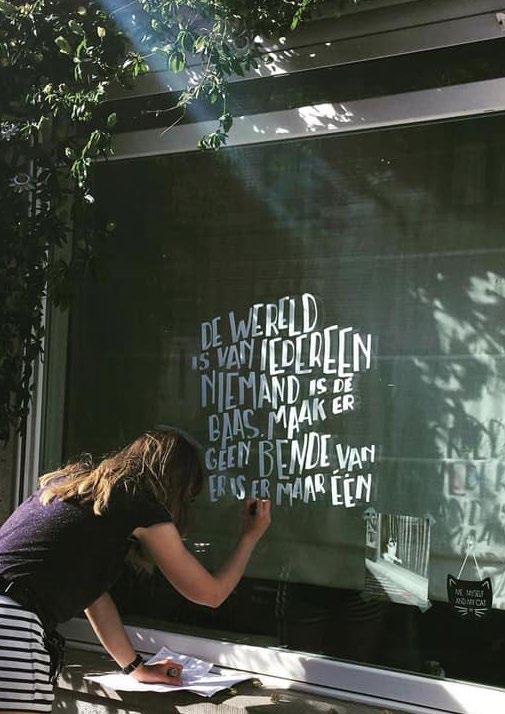 DE WERELD
IS VAN IEDEREEN
NIEMAND IS DE
BAAS. MAAK ER
GEEN BENDE VAN
ER IS ER MAAR ÉÉN
ME, MYSELF
AND MY CAT